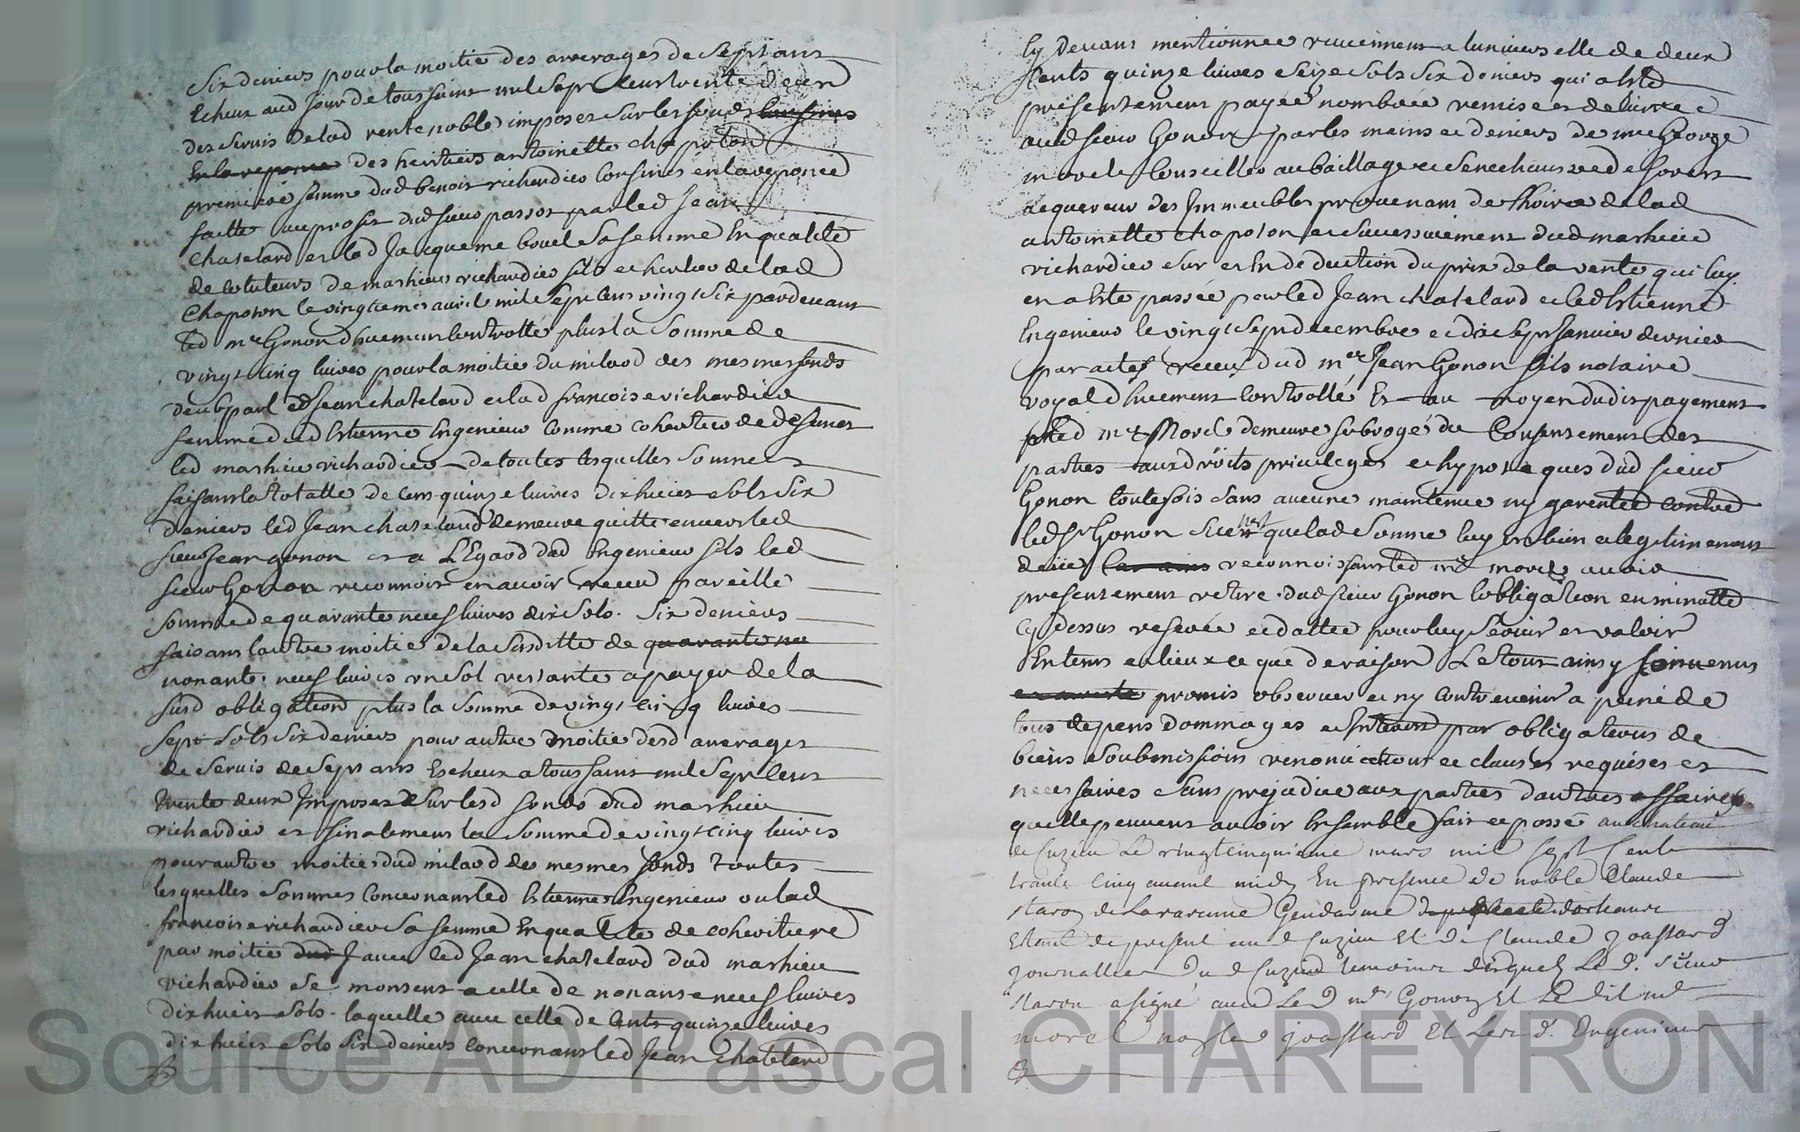 Six deniers pour la moitié des arrerages de sept ans
Echeux aud jour de toussaint mil sept cent trente deux
des servis de lad rente noble imposes sur les fonds
des heritiers antoinette chapoton
premiere femme dud benoit richardier confines en la reponce
faitte au profit dud sieur passot par led Jean
Chatelard et lad Jacqueme bouel sa femme En qualité
de cotuteurs de mathieu richardier fils et heritier de lad
Chapoton le vingtieme avril mil sept cens vingt six pardevant
led me Gonon duement controllé plus la somme de
vingt cinq livres pour la moitié du milard des mesmes fonds
deub par led Jean chatelard et lad francoise richardier
femme dud Estienne Ingenieux comme coheritiers de defunct
led mathieu richardier de toutes lesquelles sommes
faisant la totalle de cent quinze livres dix huict sols six
deniers led Jean chatelard demeure quitte envers led
sieur Jean gonon et a L'Egard dud Ingenieux fils led
sieur Gonon reconnoit en avoir receu pareille
somme de quarante neuf livres dix sols six deniers
faisant lautre moitié de la susditte de quarante ne
nonante neuf livres un sol restante a payer de la
susd obligation plus la somme de vingt cinq livres
sept sols six deniers pour autre moitié desd arrerages
de servis de sept ans Escheux a toussaint mil sept cens
trente deux Imposez sur lesd fonds dud mathieu
richardier et finalement la somme de vingt cinq livres
pour autre moitié dud milard des mesmes fonds toutes
lesquelles sommes concernant led Estienne Ingenieux ou lad
francoise richardier sa femme En qualite de coheritiere
par moitié avec led Jean chatelard dud mathieu
richardier se montent a celle de nonante neuf livres
dix huict sols laquelle avec celle de cents quinze livres
dix huict sols six deniers concernant led Jean Chatelard
Cy devant mentionnee reviennent a lunivers elle de deux
Cents quinze livres seize sols six deniers qui a été
presentement payée nombrée remise et delivrée
aud sieur Gonon par les mains et deniers de me George
morel Conseiller au bailliage et senechaussee de forest
acquereur des Immeubles provenant de lhoirie de lad
antoinette chapoton et successivement dud mathieu
richardier sur et En deduction du prix de la vente qui luy
en a Esté passée par led Jean chatelard et led Estienne
Ingenieux le vingt sept decembre et dix sept Janvier dernier
par actes receus dud me Jean Gonon fils notaire
royal duement controllé Et au moyen dudit payement
led me Morel demeure subrogé du Consentement des
parties aux droits privileges et hypoteques dud sieur
Gonon toutefois sans aucune maintenue ny garentie contre
led sr Gonon si ce nest que lad somme luy est bien et legitimement
deüe reconnoissant led me morel avoir
presentement retiré dud sieur Gonon lobligation en minutte
cy dessus resérée et dattée pour luy servir et valoir
En tems et lieux ce que de raison Le tout ainsy convenus
promis observer et ny contrevenir a peine de
tous depens dommages et Interests par obligations de
biens soubmissions renonciations et clauses requises et
necessaires sans prejudice aux parties dautres affaires
quelle peuvent avoir Ensemble fait et passé au chateau
de Cuzieu Le vingtcinquieme mars mil sept Cent
trente Cinq avant midy En presence de noble Claude
staron de Lararinne Gendarme dorleans
Estant de present aud Cuzieu Et de Claude Joassard
Journallier dud Cuzieu temoins desquels Le d. sieur
staron a signé avec Led me Gonon Et Le dit me
morel non le Joassard Et Les d. Ingenieux
Source AD Pascal CHAREYRON